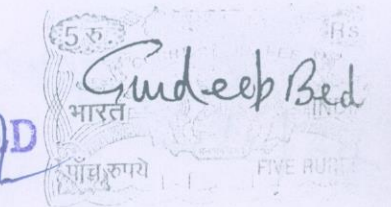 5 रु. Rs
Gurdeep Bed
भारत
D
पाँच रुपये FIVE RUPEE